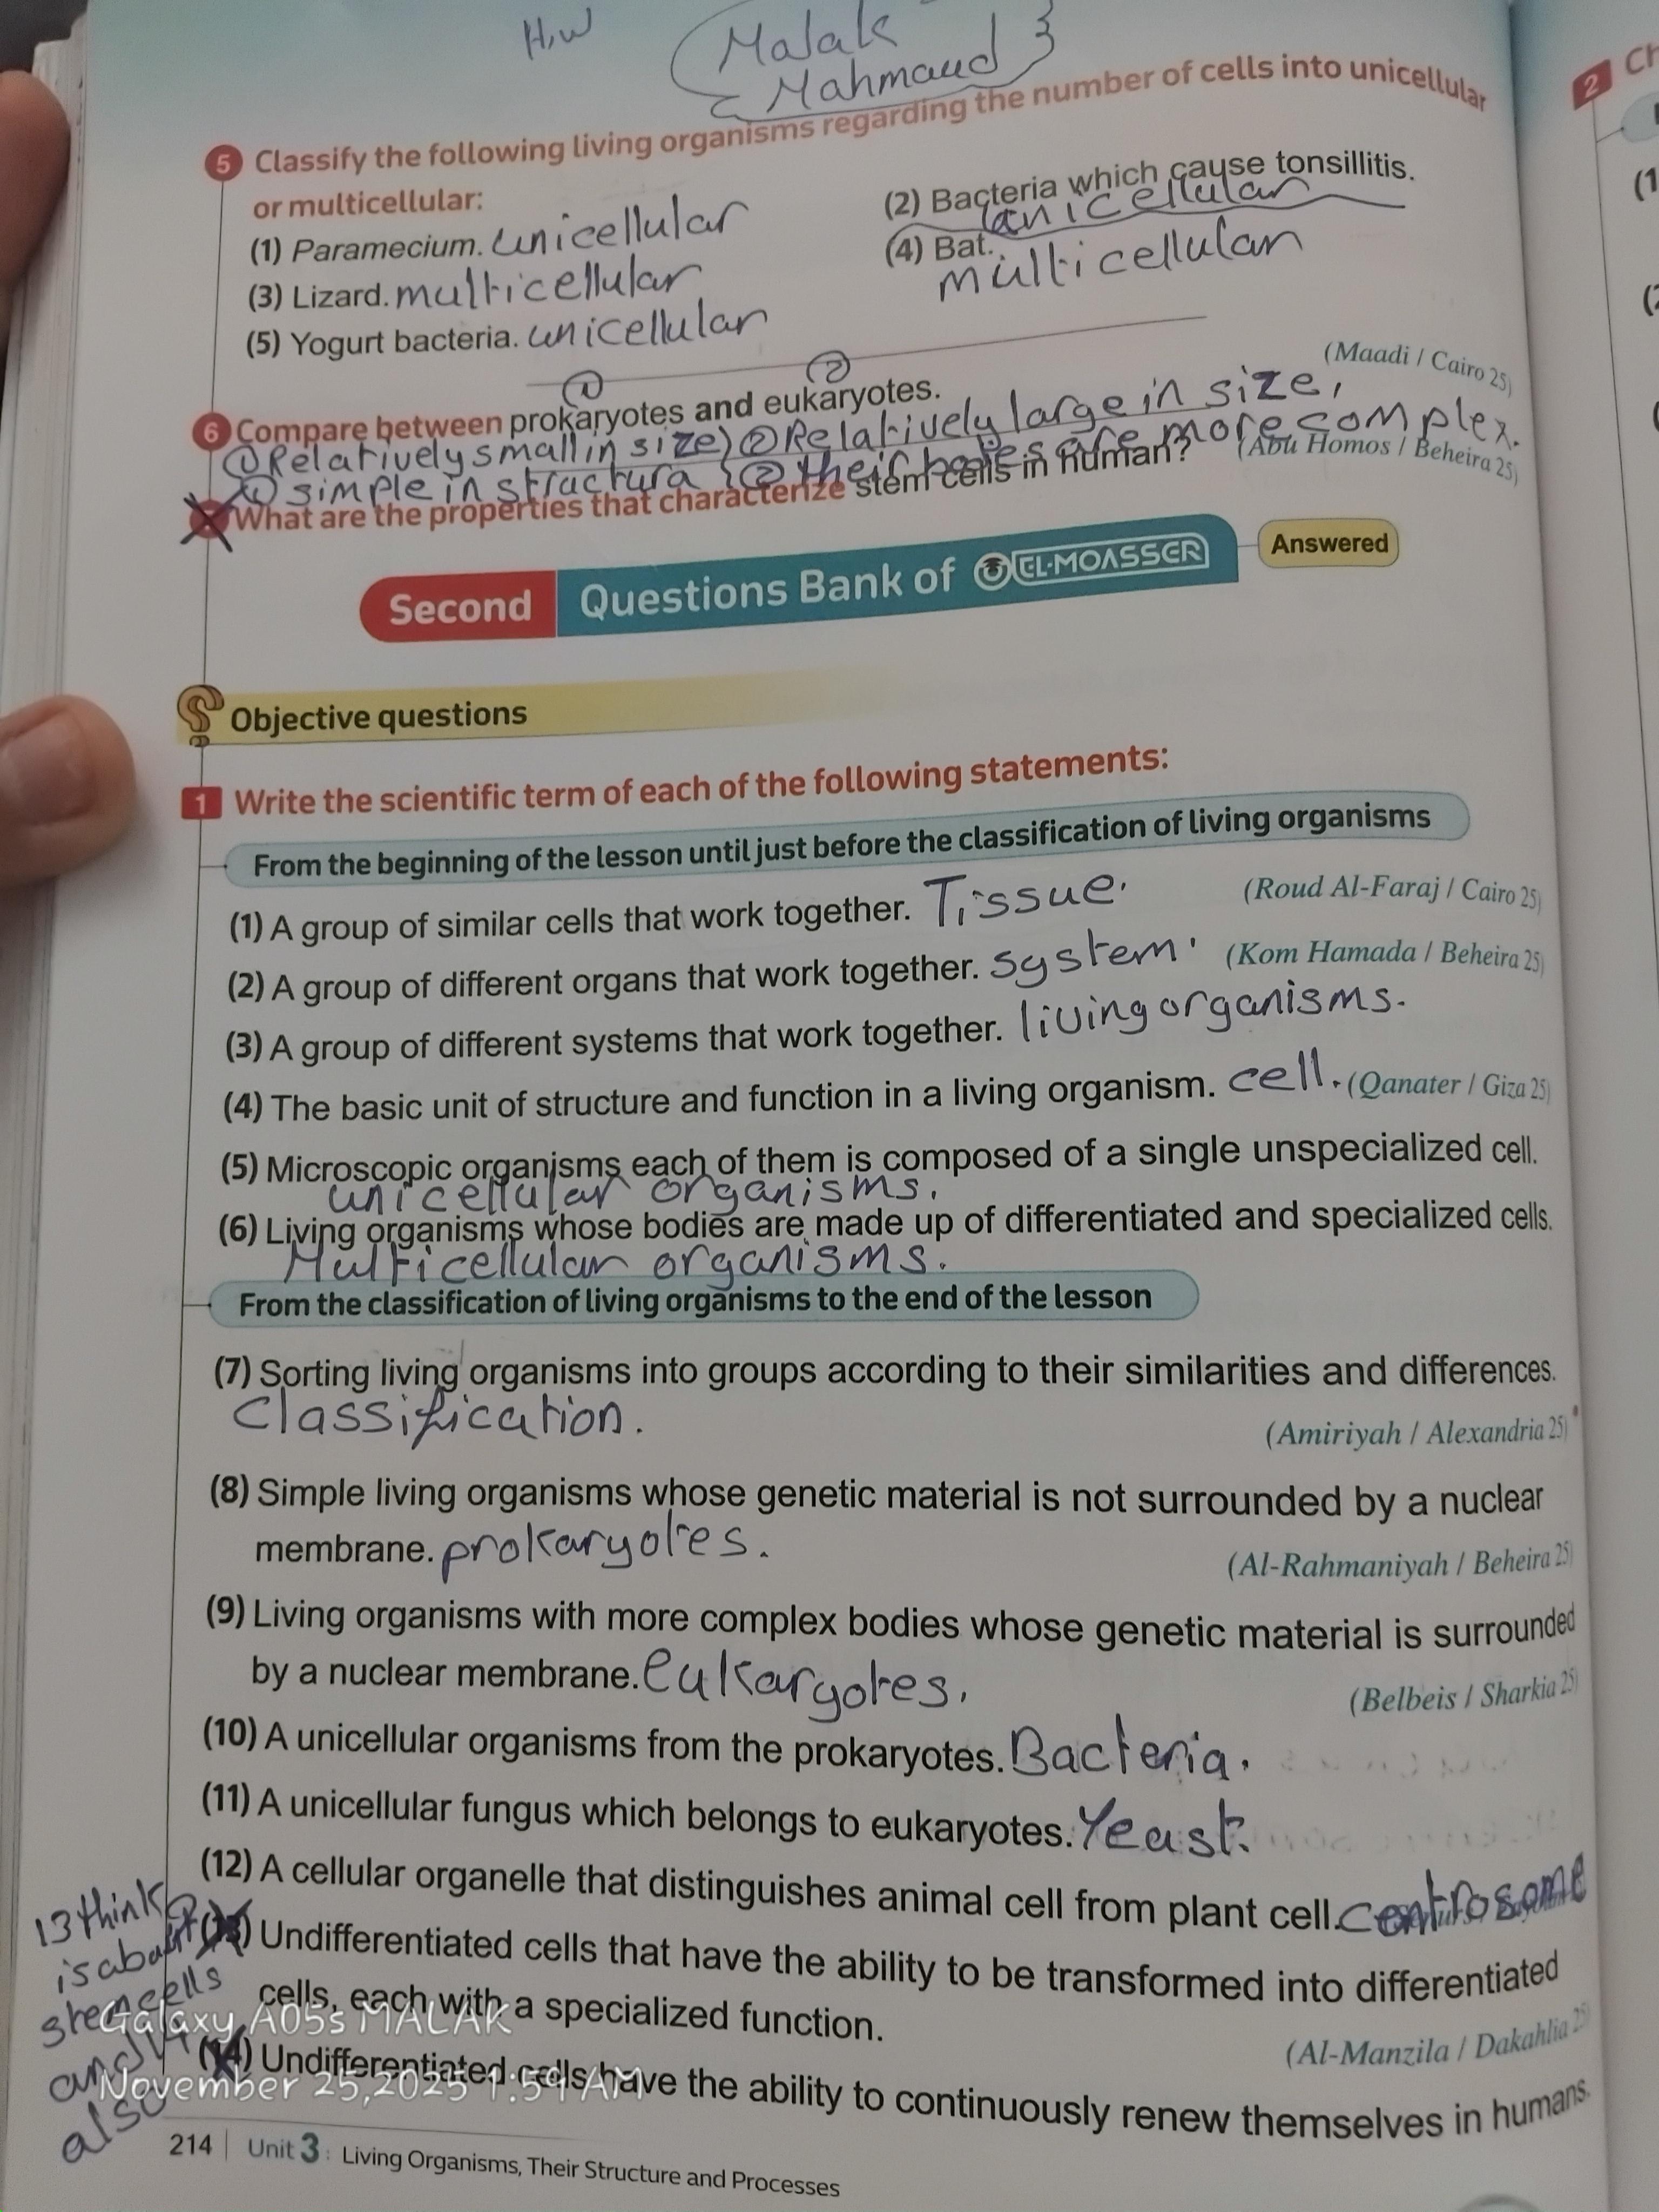 H.W
Malak
Mahmaud
5 Classify the following living organisms regarding the number of cells into unicellular
or multicellular:
(1) Paramecium. unicellular
(2) Bacteria which cause tonsillitis.
unicellular
(3) Lizard. multicellular
(4) Bat.
multicellular
(5) Yogurt bacteria. unicellular
(Maadi / Cairo 25)
① ②
6 Compare between prokaryotes and eukaryotes.
① Relatively small in size) ② Relatively large in size,
① simple in structura ② their bodies are more complex.
(Abu Homos / Beheira 25)
What are the properties that characterize stem cells in human?
Second Questions Bank of EL-MOASSER Answered
Objective questions
1 Write the scientific term of each of the following statements:
From the beginning of the lesson until just before the classification of living organisms
(1) A group of similar cells that work together. Tissue. (Roud Al-Faraj / Cairo 25)
(2) A group of different organs that work together. system. (Kom Hamada / Beheira 25)
(3) A group of different systems that work together. living organisms.
(4) The basic unit of structure and function in a living organism. cell. (Qanater / Giza 25)
(5) Microscopic organisms each of them is composed of a single unspecialized cell.
unicellular organisms.
(6) Living organisms whose bodies are made up of differentiated and specialized cells.
Multicellular organisms.
From the classification of living organisms to the end of the lesson
(7) Sorting living organisms into groups according to their similarities and differences.
Classification.
(Amiriyah / Alexandria 25)
(8) Simple living organisms whose genetic material is not surrounded by a nuclear
membrane. prokaryotes.
(Al-Rahmaniyah / Beheira 25)
(9) Living organisms with more complex bodies whose genetic material is surrounded
by a nuclear membrane. eukaryotes.
(Belbeis / Sharkia 25)
(10) A unicellular organisms from the prokaryotes. Bacteria.
(11) A unicellular fungus which belongs to eukaryotes. Yeast.
(12) A cellular organelle that distinguishes animal cell from plant cell. centrosome
(13) Undifferentiated cells that have the ability to be transformed into differentiated
cells, each with a specialized function.
(Al-Manzila / Dakahlia 25)
(14) Undifferentiated cells have the ability to continuously renew themselves in humans.
13 think
is about
stem cells
and 14
also
Galaxy A05s MALAK
November 25,2025 1:59 AM
214 Unit 3 : Living Organisms, Their Structure and Processes
2 Ch